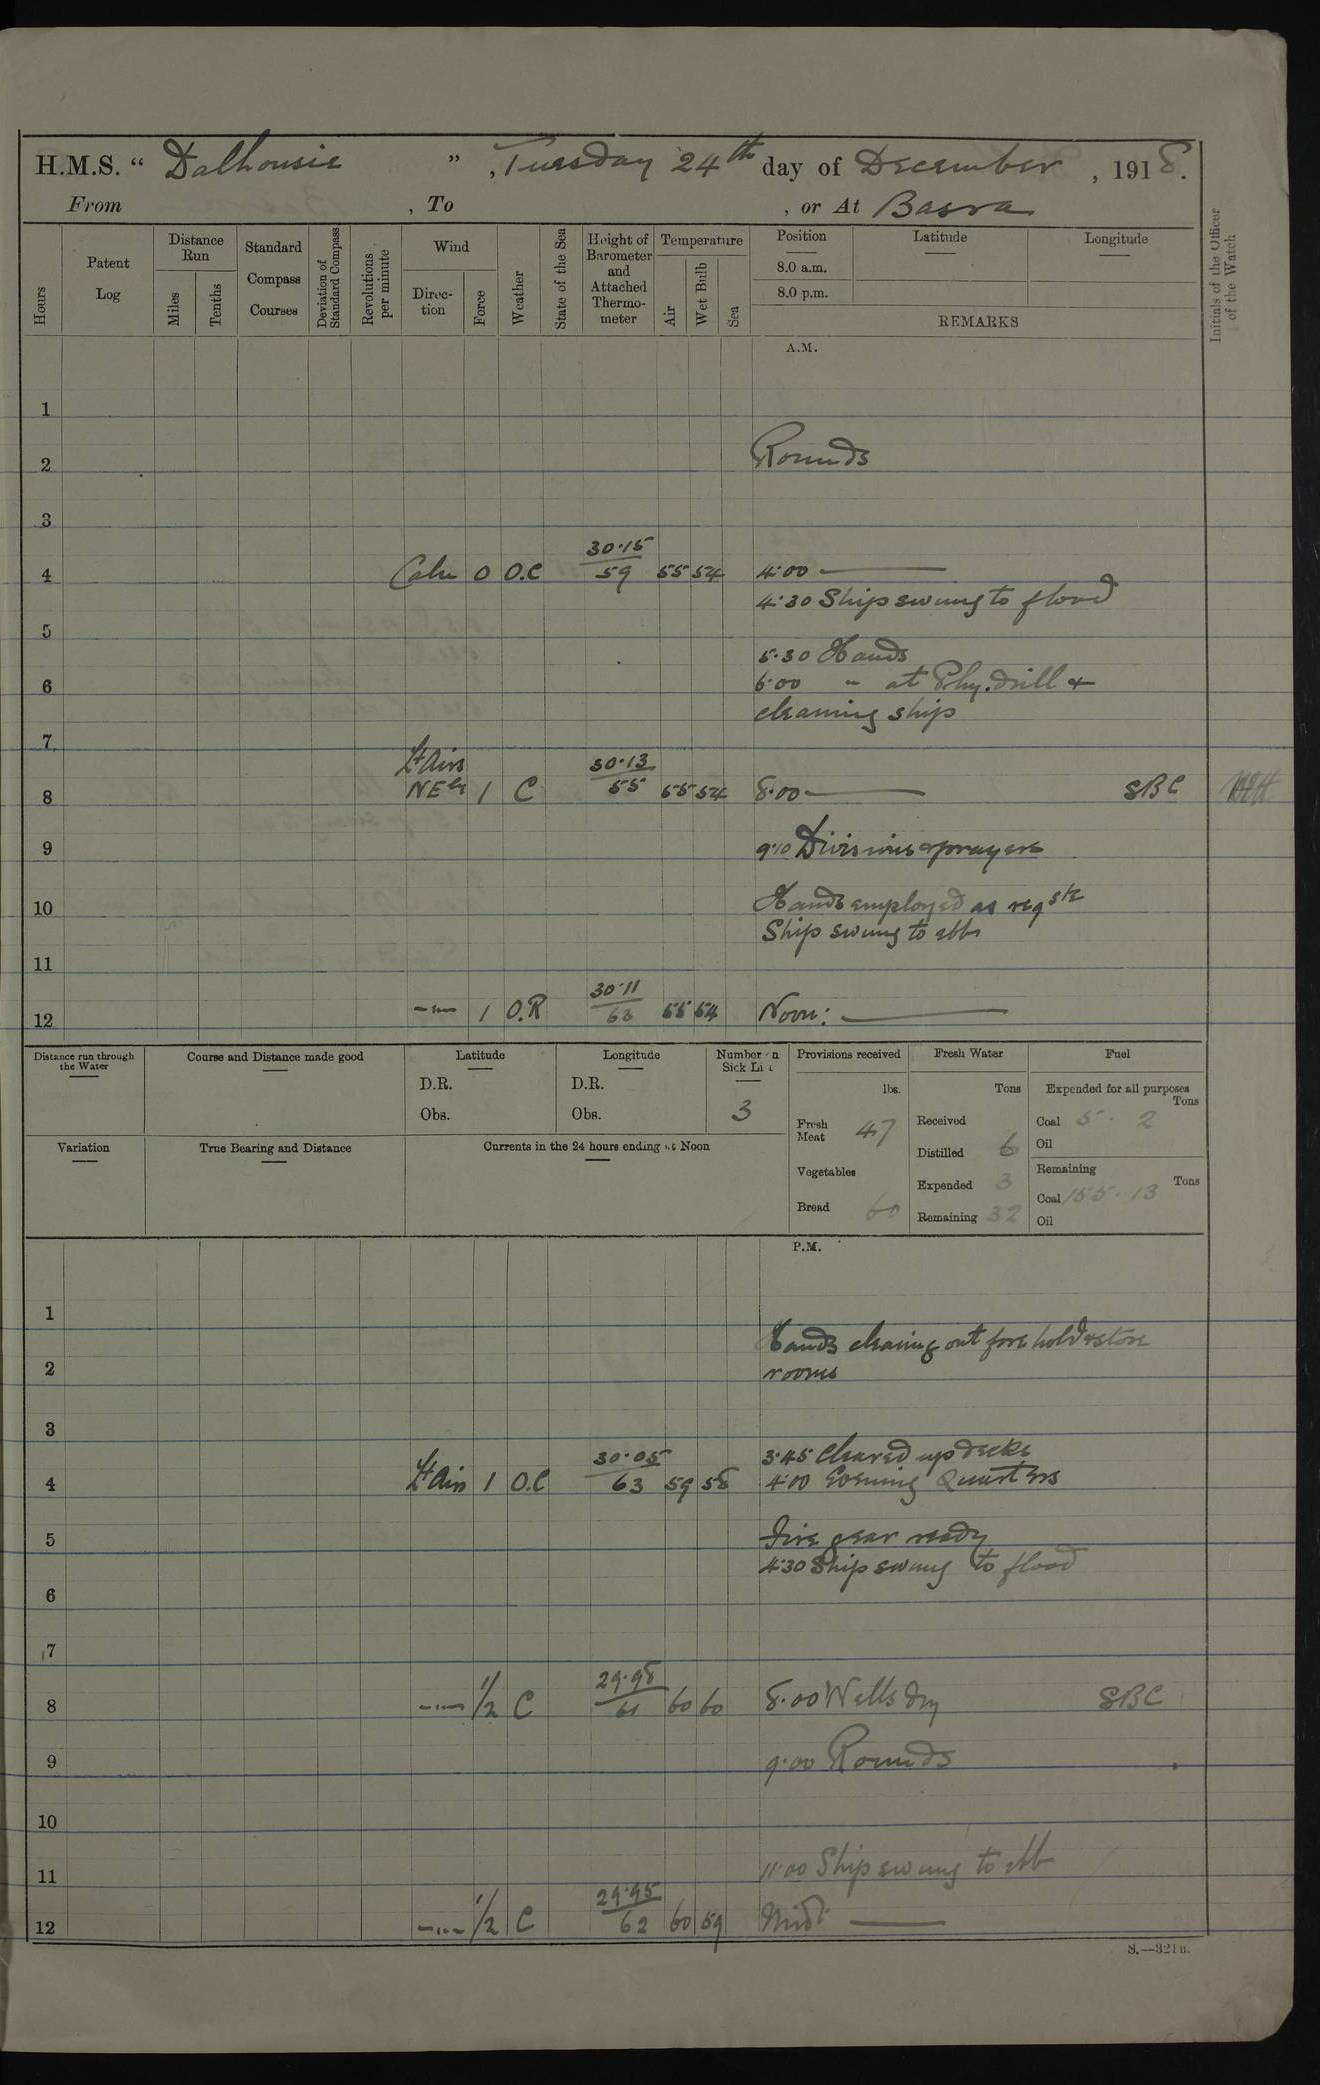 H.M.S. “ Dalhousie ” , Tuesday 24th day of December , 1918.
From , To , or At Basra
Hours
Patent Log
Distance Run
Miles
Tenths
Standard Compass Courses
Deviation of Standard Compass
Revolutions per minute
Wind
Direc-tion
Force
Weather
State of the Sea
Height of Barometer and Attached Thermo-meter
Temperature
Air
Wet Bulb
Sea
Position
8.0 a.m.
8.0 p.m.
Latitude
Longitude
REMARKS
Initials of the Officer of the Watch
A.M.
1
2 Rounds
3
30·15
4 Calm 0 O.C 59 55 54 4:00 ———
4:30 Ship swung to flood
5
5·30 Hands
6 6·00 " at Phy. drill &
cleaning ship
7
Lt Airs 30·13
8 NEly 1 C 55 55 54 8·00 ——— SBC
9 9·10 Divisions & prayers
10 Hands employed as reqste
Ship swung to ebb
11
30·11
12 -"- 1 O.R 63 55 54 Noon: ———
Distance run through the Water
Course and Distance made good
Latitude
D.R.
Obs.
Longitude
D.R.
Obs.
Number on Sick List
3
Provisions received
lbs.
Fresh Meat 47
Vegetables
Bread 60
Fresh Water
Tons
Received
Distilled 6
Expended 3
Remaining 32
Fuel
Expended for all purposes
Tons
Coal 5 · 2
Oil
Remaining
Tons
Coal 155·13
Oil
Variation
True Bearing and Distance
Currents in the 24 hours ending at Noon
P.M.
1
Hands cleaning out fore hold & store
2 rooms
3
30·05 3·45 Cleared up decks
4 Lt Airs 1 O.C 63 59 58 4:00 Evening Quarters
5 Fire gear ready
4:30 Ship swung to flood
6
7
29·98
8 -"- 1/2 C 61 60 60 8·00 Wells dry SBC
9 9·00 Rounds
10
11 11·00 Ship swung to ebb
29·95
12 -"- 1/2 C 62 60 59 Midt ———
S.—321B.